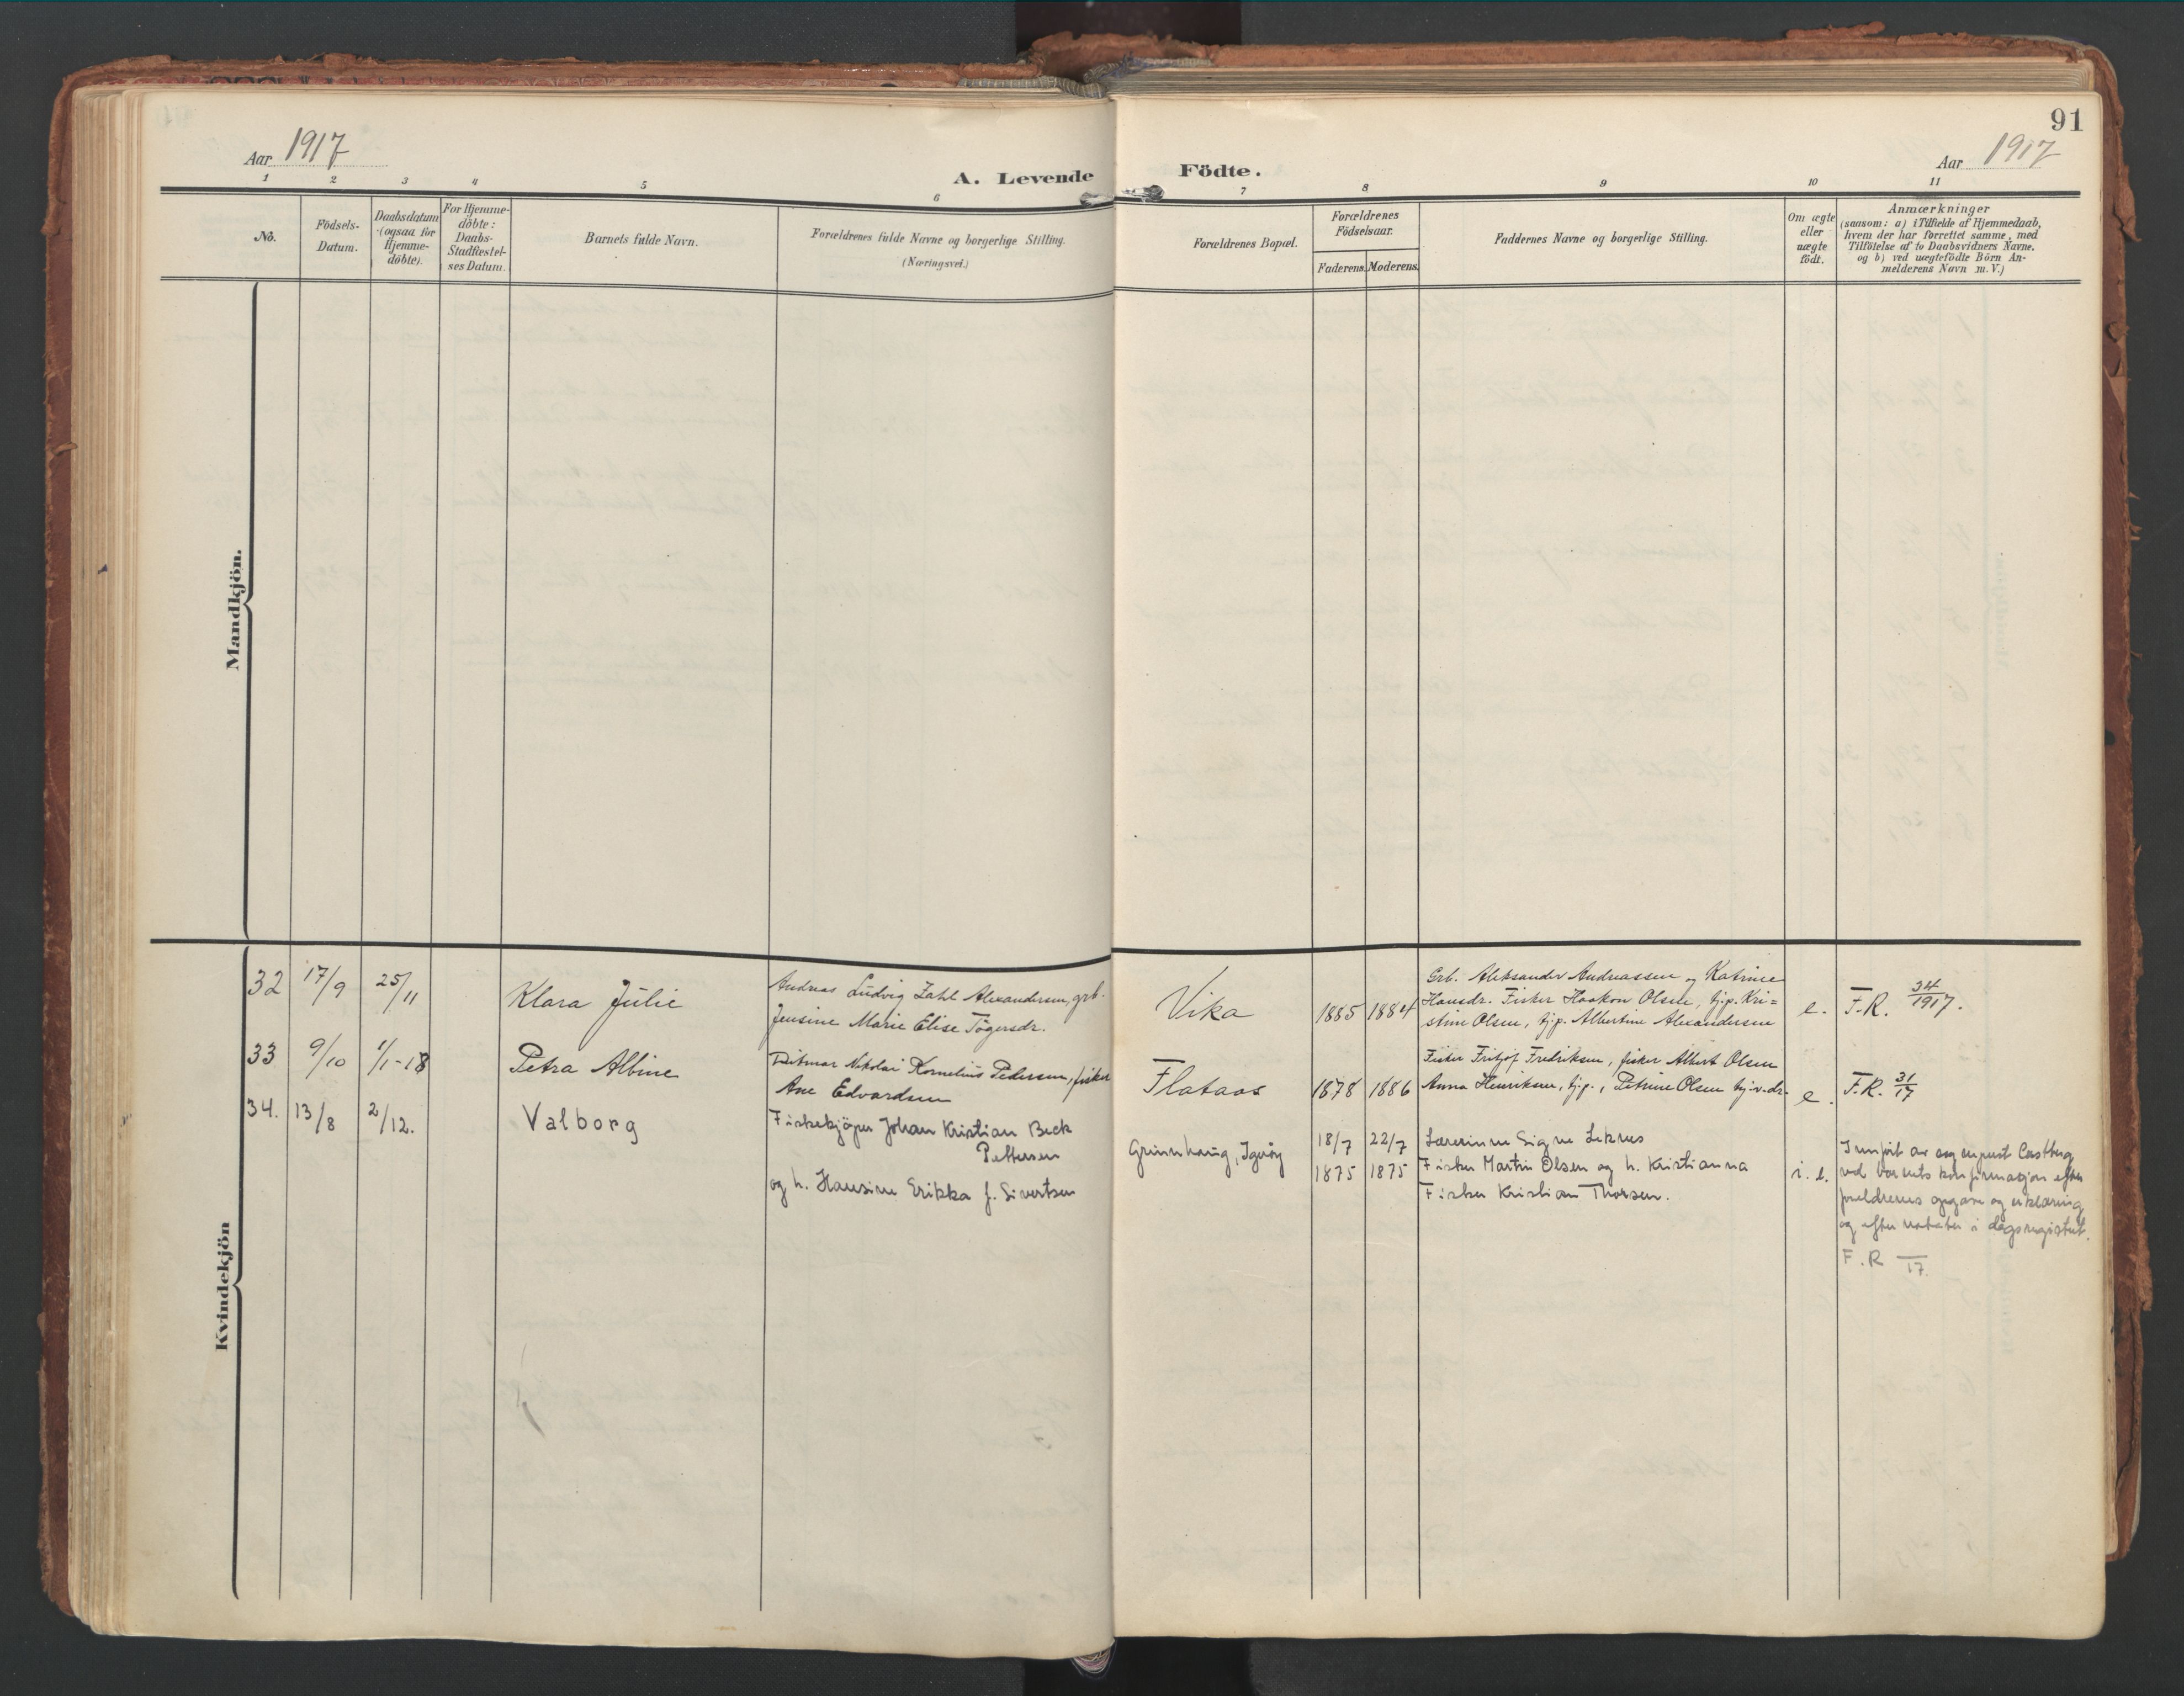 91
Aar 1917
Aar 1917
A. Levende Födte.
1 2 3 4 5 6 7 8 9 10 11
No.
Födsels-
Datum.
Daabsdatum
(ogsaa for
Hjemme-
döbte).
For Hjemme-
döbte:
Daabs-
Stadfæstel-
ses Datum.
Barnets fulde Navn.
Forældrenes fulde Navne og borgerlige Stilling.
(Næringsvei.)
Forældrenes Bopæl.
Forældrenes
Födselsaar.
Faderens. Moderens.
Faddernes Navne og borgerlige Stilling.
Om ægte
eller
uægte
födt.
Anmærkninger
(saasom: a) i Tilfælde af Hjemmedaab,
hvem der har forrettet samme, med
Tilföielse af to Daabsvidners Navne,
og b) ved uægtefödte Börn An-
melderens Navn m.V.)
Mandkjön.
Kvindekjön
32 17/9 25/11
Klara Julie
Andreas Ludvig Zahl Alexandersen, grb.
Jensine Marie Elise Tögersdr.
Vika
1885 1884
Grb. Aleksander Andreassen og Katrine
Hansdr. Fisker Haakon Olsen, tj.p. Kri=
stine Olsen, tj.p. Albertine Alexandersen
e.
F.R. 34/1917.
33 9/10 1/1-18
Petra Albine
Ditmar Nikolai Kornelius Pedersen, fisker
Ane Edvardsen
Flataas
1878 1886
Fisker Fritjof Fredriksen, fisker Albert Olsen
Anna Henriksen, tj.p., Petrine Olsen
e.
F.R. 31/17
34. 13/8 2/12.
Valborg
Fiskekjöper Johan Kristian Beck
Pettersen
og h. Hansine Erikka f. Sivertsen
Grunnhaug, Igeröy
18/7 22/7
1875 1875
Lærerinne Signe Leknes
Fisker Martin Olsen og h. Kristianna
Fisker Kristian Thorsen.
i. e.
Innfört av sogneprest Castberg
ved barnets konfirmasjon efter
foreldrenes opgave og erklæring
og efter notater i dagsregistret.
F.R /17.